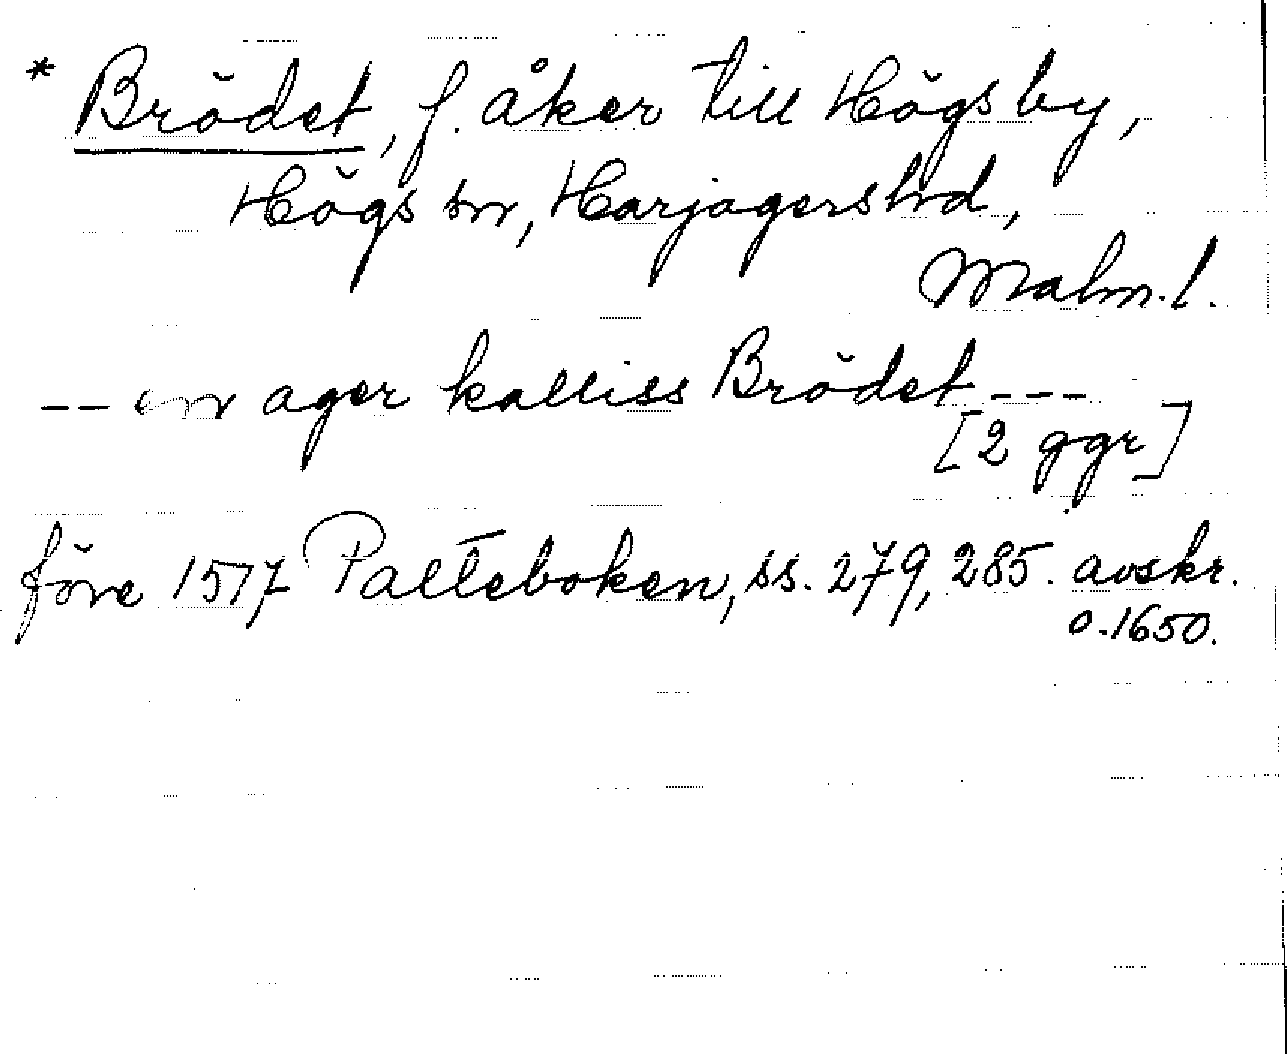 * Brödet, f. åker till Högsby,
Högs sn, Harjagershd,
Malm. l.
-- en ager kalliss Brödet ---
[2 ggr]
före 1577 Palteboken, ss. 279, 285. avskr.
o. 1650.